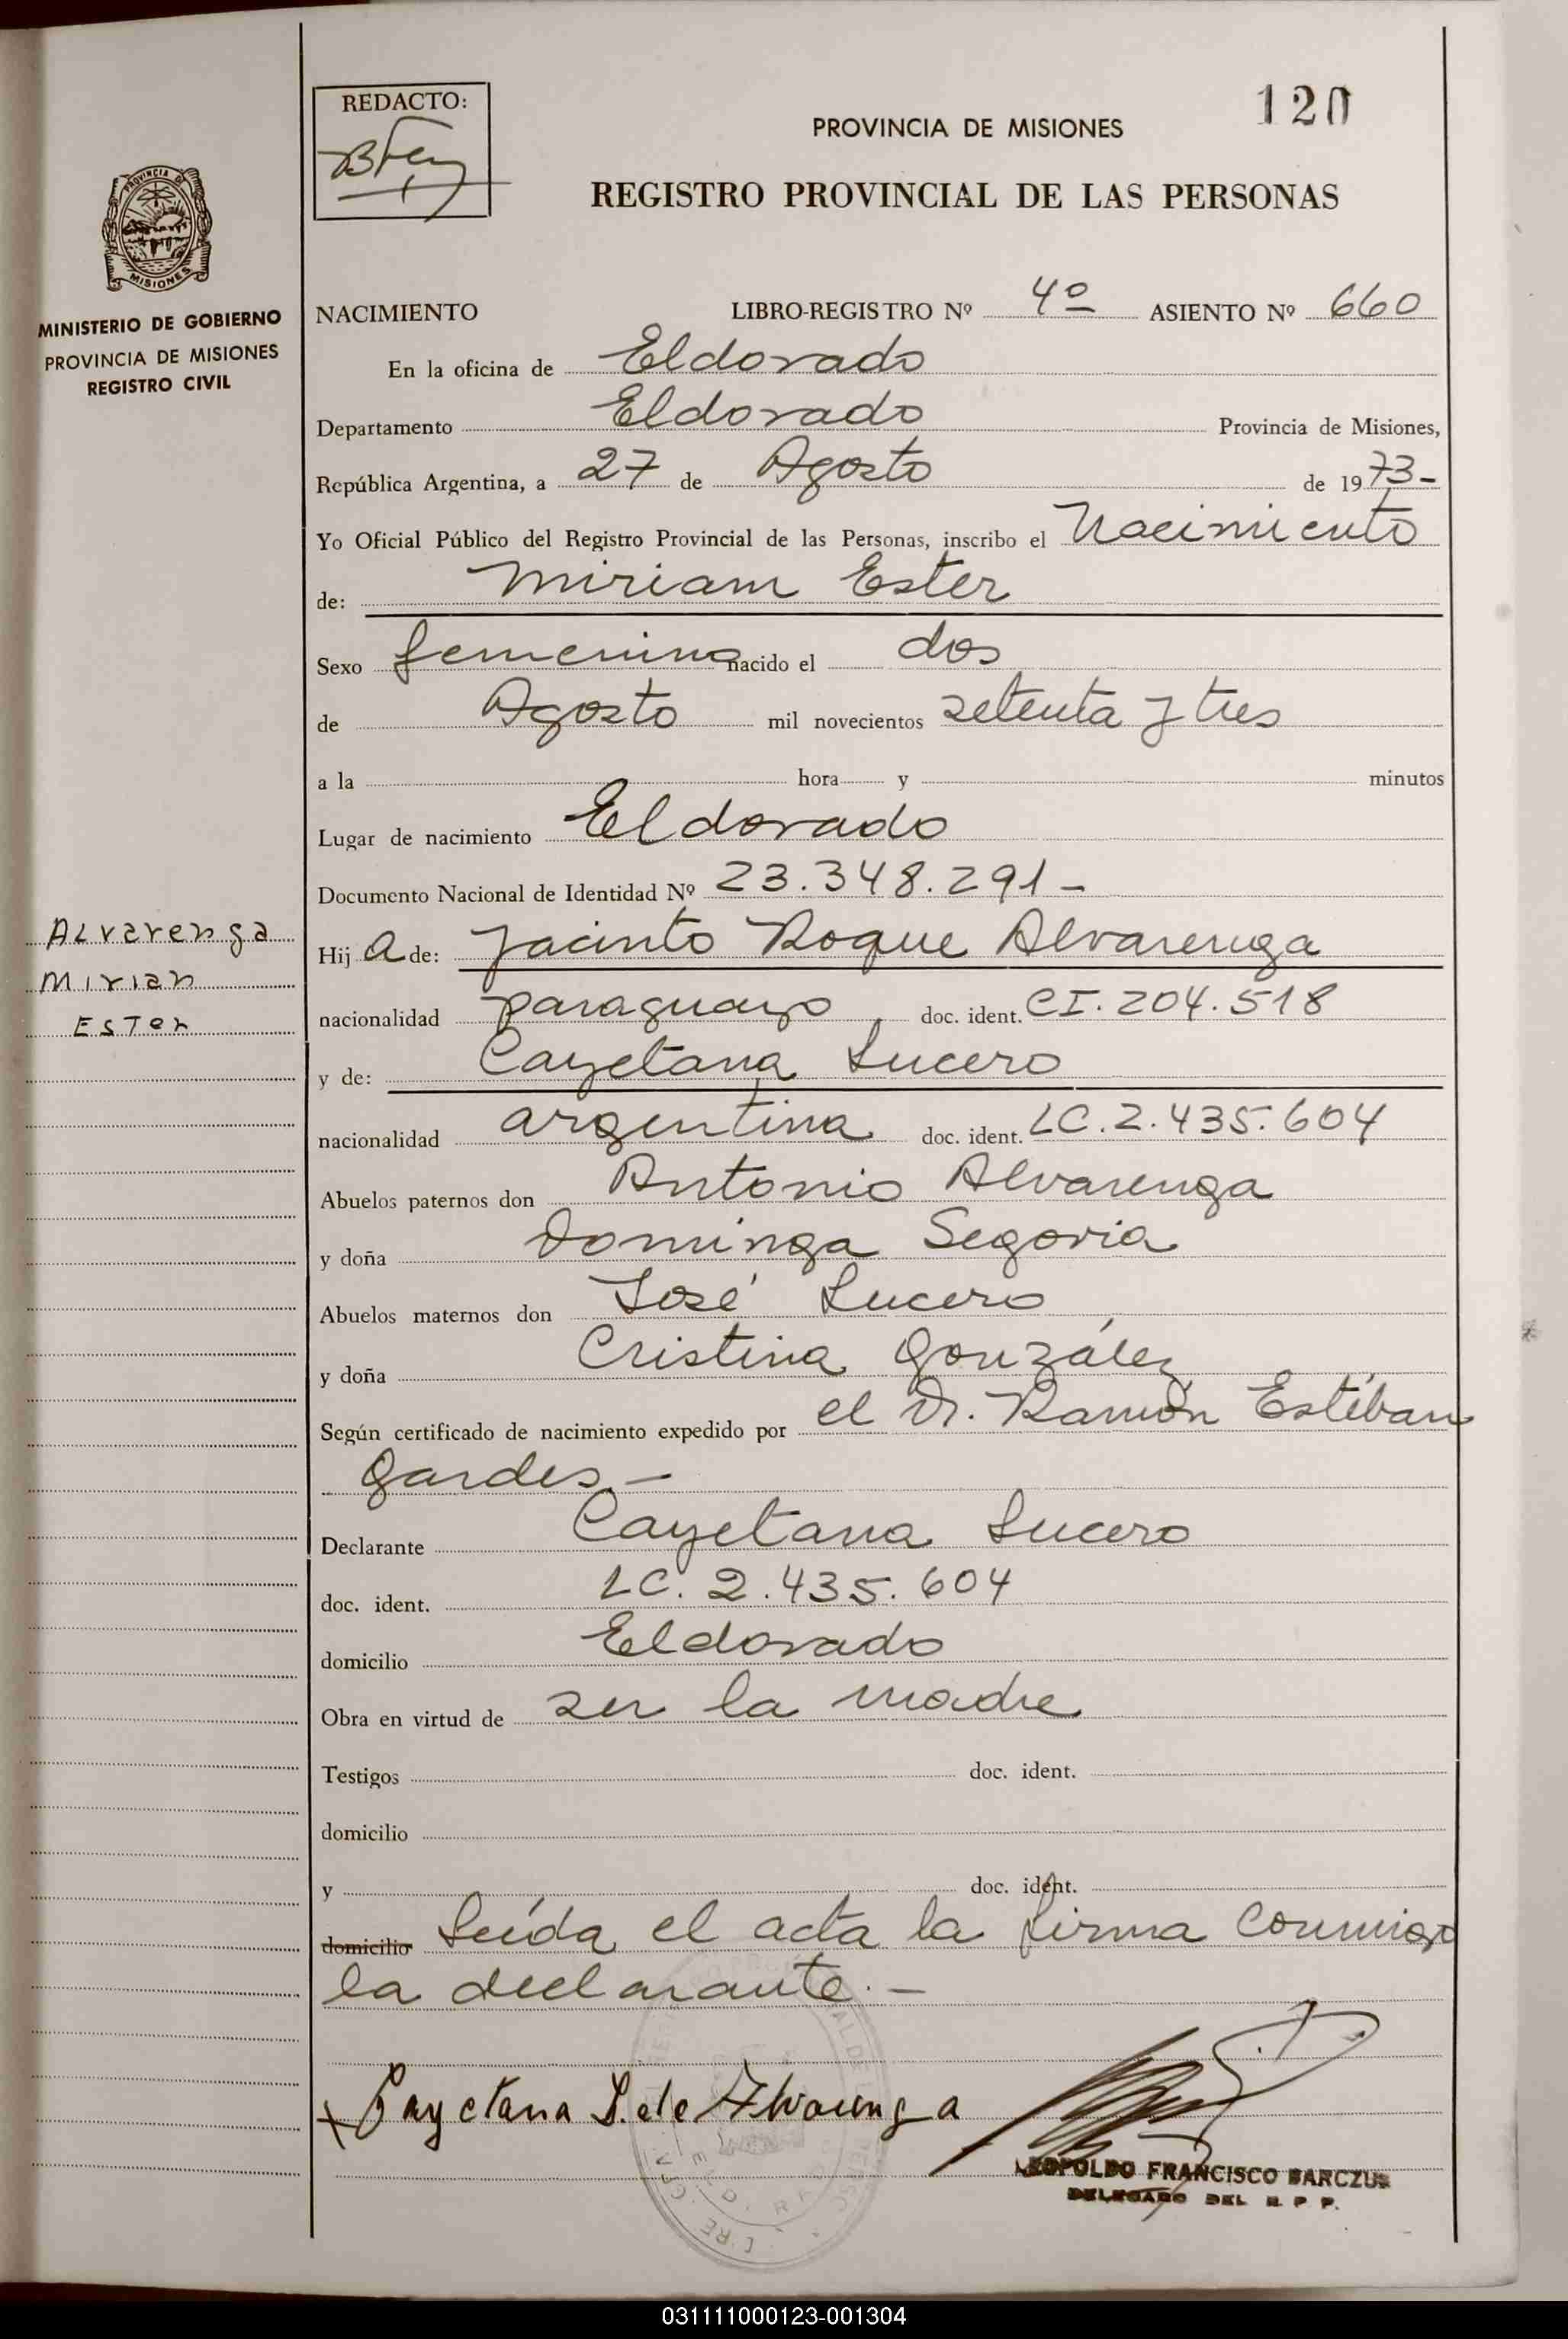 REDACTO:
120
PROVINCIA DE MISIONES
REGISTRO PROVINCIAL DE LAS PERSONAS
PROVINCIA D
MISIONES
MINISTERIO DE GOBIERNO
PROVINCIA DE MISIONES
REGISTRO CIVIL
NACIMIENTO LIBRO-REGISTRO Nº 4º ASIENTO Nº 660
En la oficina de Eldorado
Departamento Eldorado Provincia de Misiones,
República Argentina, a 27 de Agosto de 1973-
Yo Oficial Público del Registro Provincial de las Personas, inscribo el Nacimiento
de: Miriam Ester
Sexo femenino nacido el dos
de Agosto mil novecientos setenta y tres
a la hora y minutos
Lugar de nacimiento Eldorado
Documento Nacional de Identidad Nº 23.348.291-
Alvarenga
Mirian
Ester
Hij a de: Jacinto Roque Alvarenga
nacionalidad paraguayo doc. ident. CI. 204.518
y de: Cayetana Lucero
nacionalidad argentina doc. ident. LC. 2.435.604
Abuelos paternos don Antonio Alvarenga
y doña Dominga Segovia
Abuelos maternos don José Lucero
y doña Cristina González
Según certificado de nacimiento expedido por el Dr. Ramón Estéban
Gardes.-
Declarante Cayetana Lucero
doc. ident. LC. 2.435.604
domicilio Eldorado
Obra en virtud de ser la madre
Testigos doc. ident.
domicilio
y doc. ident.
domicilio Leída el acta la firma conmigo
la declarante.-
Cayetana L. de Alvarenga
LEOPOLDO FRANCISCO BARCZUK
DELEGADO DEL R. P. P.
031111000123-001304